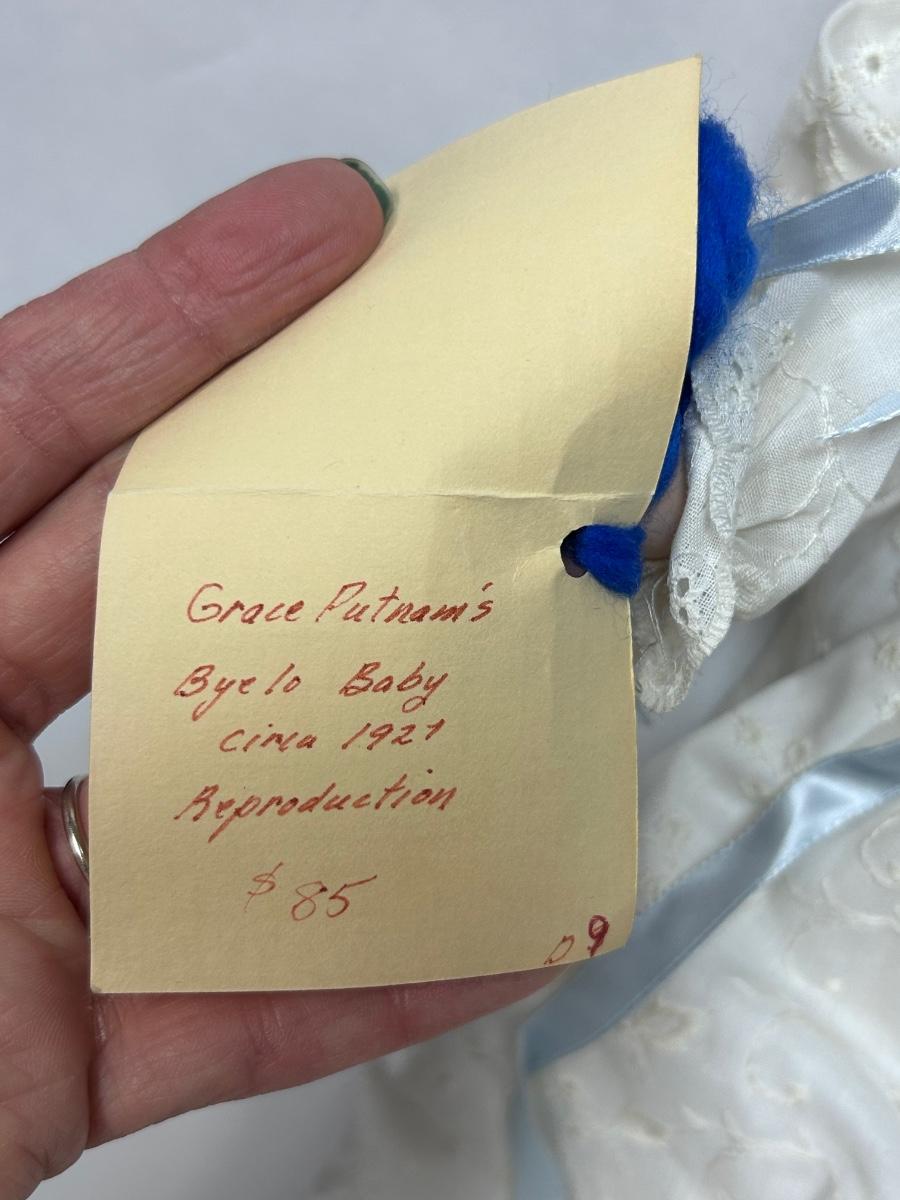 Grace Putnam's
Byelo Baby
circa 1927
Reproduction
$85
D9